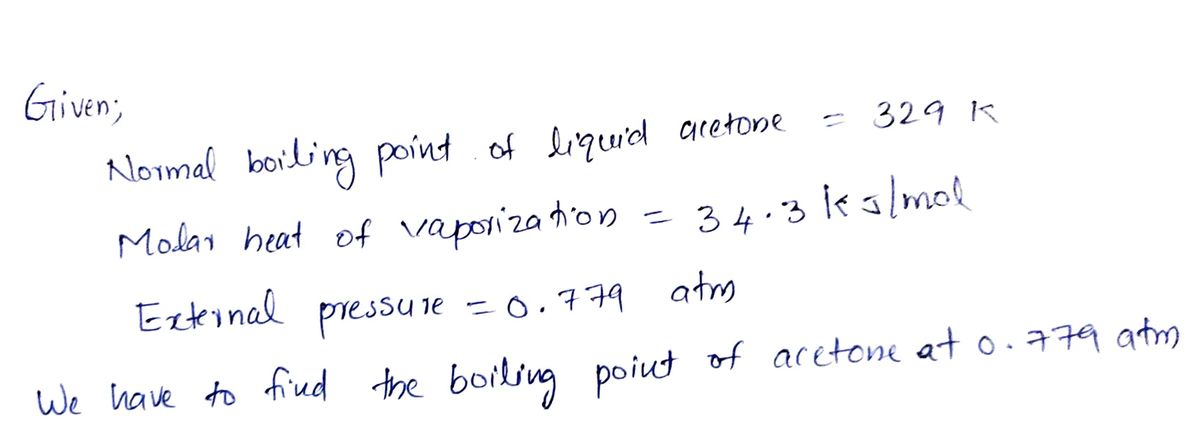 Given;
Normal boiling point of liquid acetone = 329 K
Molar heat of vaporization = 34.3 kJ/mol
External pressure = 0.779 atm
We have to find the boiling point of acetone at 0.779 atm